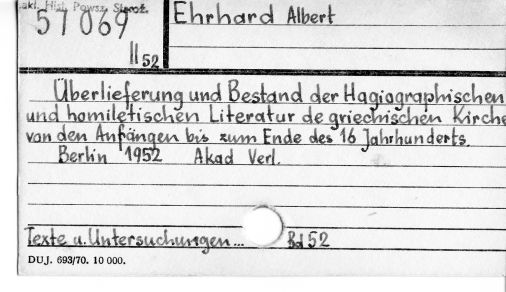 akl. Hist. Powsz. Staroż.
57069
II 52
Ehrhard Albert
Überlieferung und Bestand der Hagiographischen
und homiletischen Literatur de griechischen Kirche
von den Anfängen bis zum Ende des 16 Jahrhunderts.
Berlin 1952 Akad Verl.
Texte u. Untersuchungen... Bd 52
DUJ. 693/70. 10 000.